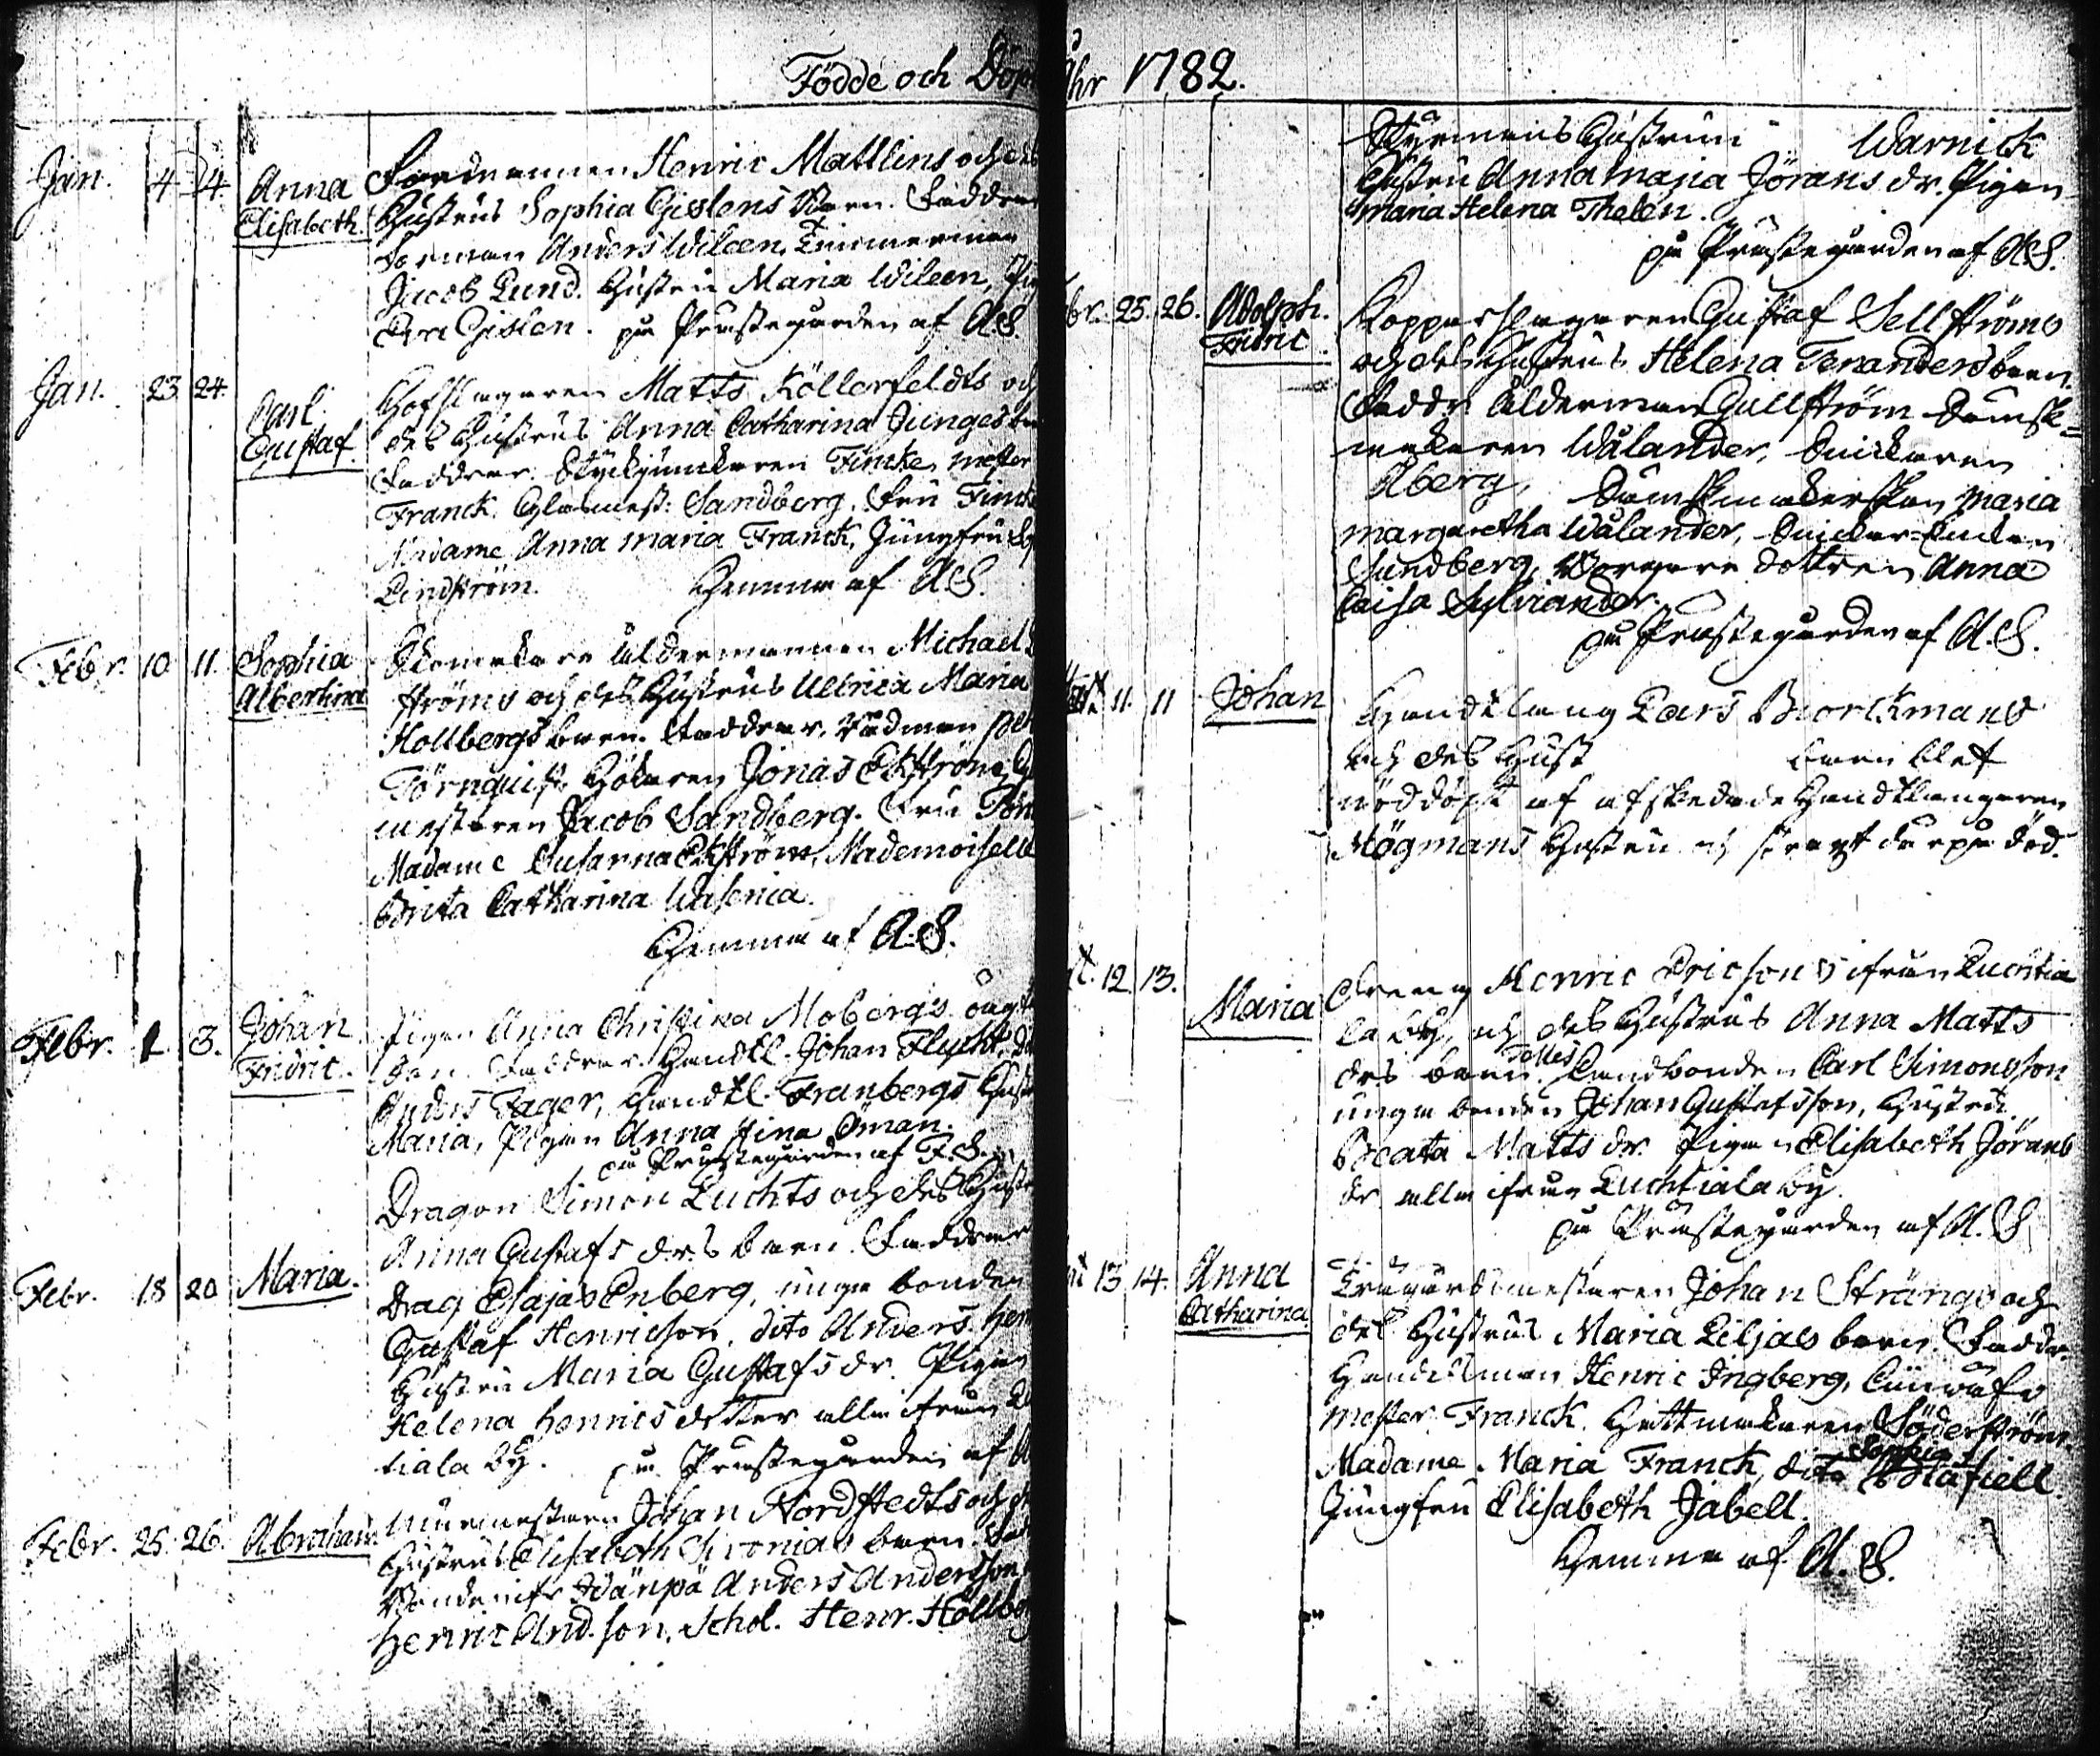 Födde och Döp
Jan. 4 4 Anna Elisabeth.
Formannen Henric Mattlins och des
Hustrus Sophia Gislens Barn. Faddrar
Forman Anders Wileen, Timmerman
Jacob Lund. Hustru Maria Wileen, Pig
Gislen. på Prästegården af A.S.
Jan. 23 24. Carl Gustaf.
Hofslagaren Matts Köllerfeldts och
des Hustrus Anna Catharina Junges
Faddrar. Styckjunkaren Fincke, Mester
Franck. Glasmest: Sandberg. Fru Finck
Madame Anna Maria Franck, Jungfru
Lindström. Hemma af A.S.
Febr. 10 11. Sophia Albertina
Skomakare Åldermannen Michael
ströms och des Hustrus Ullrica Maria
Hollbergs barn. Faddrar, Rådman
Törnquist. Hökaren Jonas Ekström,
mestaren Jacob Sandberg. Fru
Madame Susanna Ekström, Mademoiselle
Brita Catharina Wasenia.
Hemma af A.S.
Febr. 1. 3. Johan Fridric.
Pigan Anna Christina Mobergs
son. Faddrar. Handtl. Johan Flycht,
Anders Fager, Handtl. Franbergs Hust
Maria, Pigan Anna Stina Öman.
på Prästegården af F.S.
Dragon Simon Luchts och des Hust
Anna Gustafs drs barn. Faddrar
Febr. 18 20 Maria.
Drag Esajas Enberg, unga bonden
Gustaf Henricson, dito Anders Hen
Hustru Maria Gustafs dr. Pigan
Helena Henrics dotter alla ifrån
tiala by. på Prästegården af
Febr. 25. 26. Abraham.
Murmestaren Johan Nordstedts och
Hustrus Elisabeth Sironias barn.
Bonden ifr Idänpä Anders Anderson
Henric And.son, Schol. Henr. Hollbe
Åhr 1782.
Styrmans Hustrun Warnick
Hustru Anna Maria Jörans dr. Pigan
Maria Helena Thelen.
på Prästegården af A.S.
br. 25. 26. Adolph. Fridric.
Kopparslagaren Gustaf Sellströms
och des Hustrus Helena Tenanders barn.
Faddr Ålderman Gullström
makaren Wålander, Snickaren
Åberg, Maria
Margaretha Wålander, Snickar Enkan
Sundberg, Borgare dottren Anna
Caisa Sylviander.
på Prästegården af A.S.
11. 11 Johan
Handtlang Lars Biorckmans
och des Hust barn blef
nöddöpt af afskedade Handtlangaren
Högmans Hustru och straxt därpå död.
12. 13. Maria
Dreng Henric Ericsons ifrån Luchtia
la by, och des Hustrus Anna Matts
drs barn. Testes Landbonden Carl Simonsson
unga bonden Johan Gustafsson, Hustru
Beata Matts dr. Pigan Elisabeth Jörans
dr alla ifrån Luchtiala by.
på Prästegården af A.S
13 14. Anna Catharina
Trägårdsmestaren Johan Strängs och
des Hustrus Maria Liljas barn. Faddr.
Handelsman Henric Ingberg,
Mester Franck. Hattmakaren Söderström.
Madame Maria Franck, dito Sophia
Jungfru Elisabeth Jabell.
Hemma af A.S.